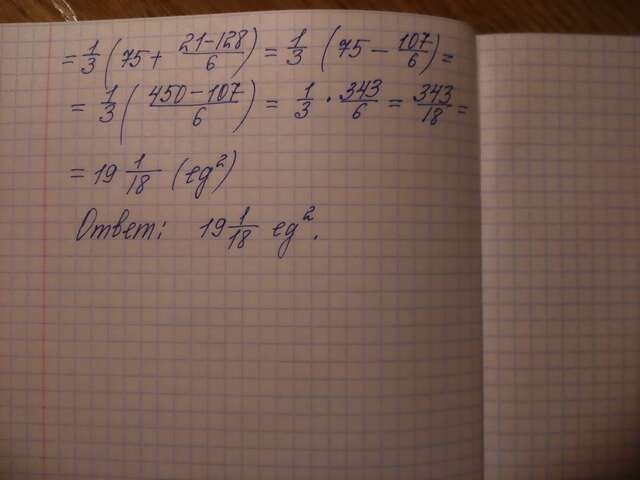 = 1/3 (75 + 21-128/6) = 1/3 (75 - 107/6) =
= 1/3 (450-107/6) = 1/3 · 343/6 = 343/18 =
= 19 1/18 (ед²)
Ответ: 19 1/18 ед².